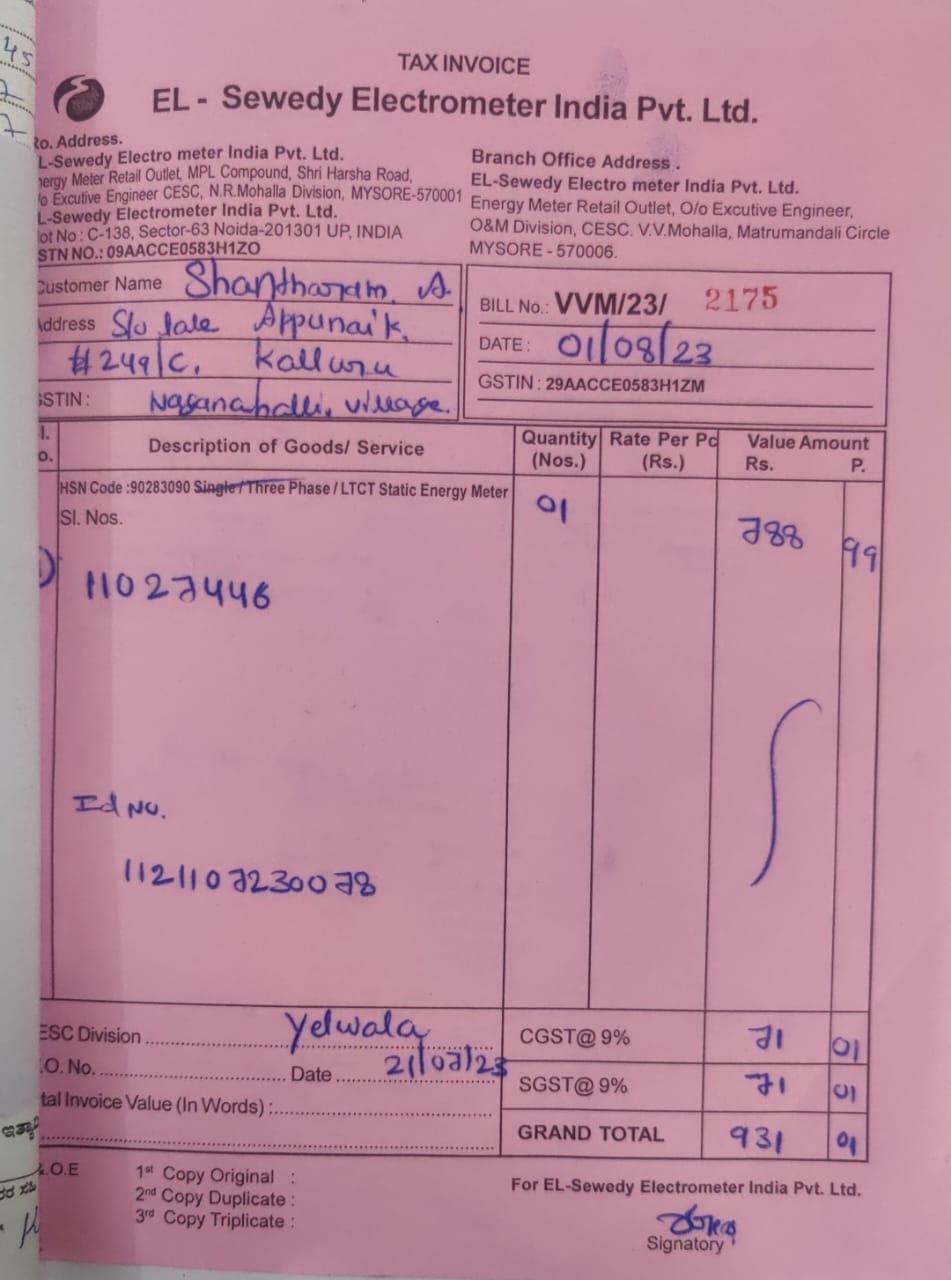 45
TAX INVOICE
EL - Sewedy Electrometer India Pvt. Ltd.
Ro. Address.
L-Sewedy Electro meter India Pvt. Ltd.
nergy Meter Retail Outlet, MPL Compound, Shri Harsha Road,
/o Excutive Engineer CESC, N.R.Mohalla Division, MYSORE-570001
L-Sewedy Electrometer India Pvt. Ltd.
ot No : C-138, Sector-63 Noida-201301 UP, INDIA
STN NO.: 09AACCE0583H1ZO
Branch Office Address .
EL-Sewedy Electro meter India Pvt. Ltd.
Energy Meter Retail Outlet, O/o Excutive Engineer,
O&M Division, CESC. V.V.Mohalla, Matrumandali Circle
MYSORE - 570006.
Customer Name Shantharam. A
Address S/o late Appunaik.
#249/C, Kalluru
GSTIN : Naganahalli, village.
BILL No.: VVM/23/ 2175
DATE : 01/08/23
GSTIN : 29AACCE0583H1ZM
l. o. Description of Goods/ Service Quantity (Nos.) Rate Per Pc (Rs.) Value Amount Rs. P.
HSN Code :90283090 Single / Three Phase / LTCT Static Energy Meter 01 788 99
Sl. Nos.
11027446
Id No.
1121107230078
ESC Division Yelwala CGST@ 9% 71 01
.O. No. Date 21/07/23 SGST@ 9% 71 01
tal Invoice Value (In Words) :
GRAND TOTAL 931 01
.O.E
1st Copy Original :
2nd Copy Duplicate :
3rd Copy Triplicate :
For EL-Sewedy Electrometer India Pvt. Ltd.
Signatory